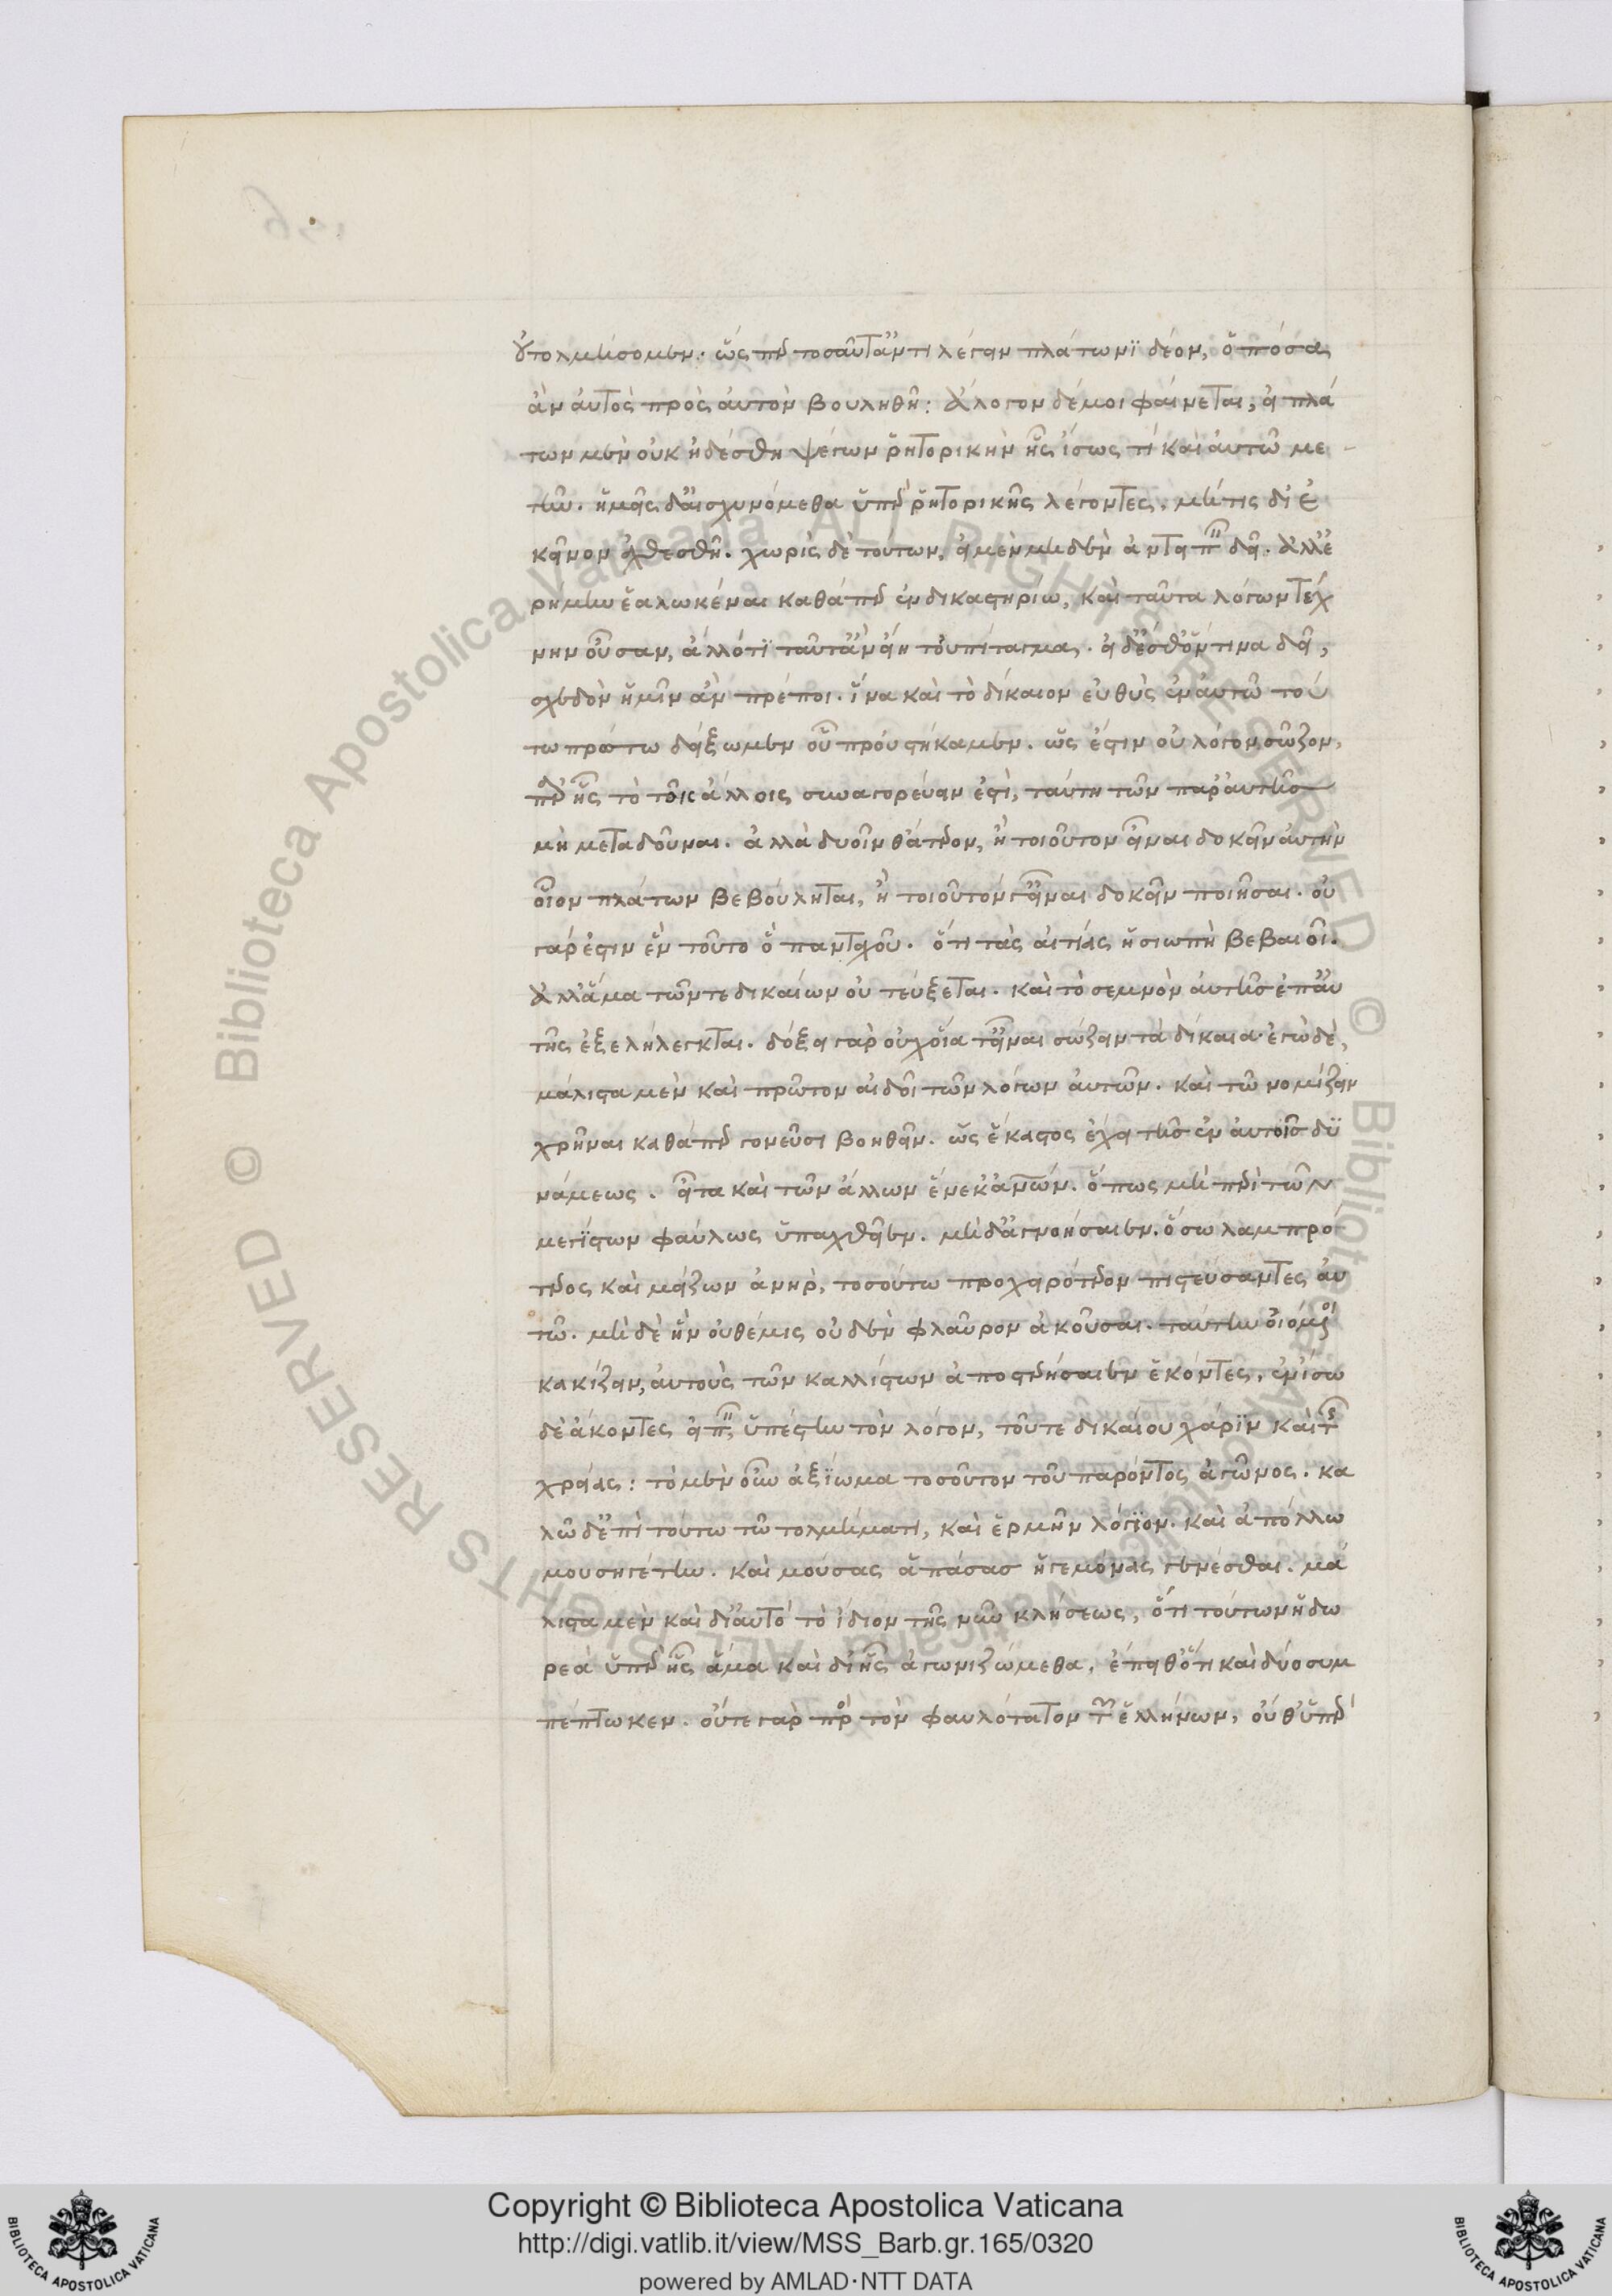 ὐτολμήσομεν. ὥσπερ τοσαῦτ' ἀντιλέγειν πλάτωνϊ δέον, ὁπόσα
ἂν αὐτὸς πρὸς αὑτὸν βουληθῆ: ἄλογον δέ μοι φαίνεται, εἰ πλά
των μὲν οὐκ ἠδέσθη ψέγων ῥητορικὴν ἧς ἴσως τί καὶ αὐτῶ με
τῆν. ἡμεῖς δ' αἰσχυνόμεθα ὑπὲρ ῥητορικῆς λέγοντες, μή τις δι' ἐ
κεῖνον ἀχθεσθῆ. χωρὶς δὲ τούτων, εἰ μὲν μηδὲν ἀντειπεῖν δεῖ. ἀλλ' ἐ
ρήμην ἑαλωκέναι καθάπερ ἐν δικαστηρίω, καὶ ταῦτα λόγων τέχ
νην οὖσαν, ἄλλό τϊ ταῦτ' ἂν εἴη τοὐπίταγμα. εἰ δ' ἔσθ' ὅντινα δεῖ,
σχεδὸν ἡμῖν ἂν πρέποι. ἵνα καὶ τὸ δίκαιον εὐθὺς ἐν αὐτῶ τού
τω πρώτω δείξωμεν οὗ προὐστήκαμεν. ὡς ἔστιν οὐ λόγον σῶζον,
περὶ ἧς τὸ τοῖς ἄλλοις συναγορεύειν ἐστὶ, ταύτη τῶν παρ' αὐτῆσ
μὴ μεταδοῦναι. ἀλλὰ δυοῖν θάτερον, ἢ τοιοῦτον εἶναι δοκεῖν αὐτὴν
οἷον πλάτων βεβούληται, ἢ τοιοῦτόν γ' εἶναι δοκεῖν ποιῆσαι. οὐ
γάρ ἐστιν ἓν τοῦτο ὃ πανταχοῦ. ὅτι τὰς αἰτίας ἡ σιωπὴ βεβαιοῖ.
ἀλλ' ἅμα τῶν τε δικαίων οὐ τεύξεται. καὶ τὸ σεμνὸν αὐτῆσ ἐπ' αὐ
τῆς ἐξελήλεγκται. δόξει γὰρ οὐχ οἵα τ' εἶναι σώζειν τὰ δίκαια· ἐγὼ δὲ,
μάλιστα μὲν καὶ πρῶτον αἰδοῖ τῶν λόγων αὐτῶν. καὶ τῶ νομίζειν
χρῆναι καθάπερ γονεῦσι βοηθεῖν. ὡς ἕκαστος ἔχει τῆσ ἐν αὐτοῖσ δϋ
νάμεως. εἶτα καὶ τῶν ἄλλων ἕνεκ' ἁπάντων. ὅπως μὴ περὶ τῶν
μεγίστων φαύλως ὑπαχθεῖεν. μηδ' ἀγνοήσαιεν. ὅσω λαμπρό
τερος καὶ μείζων ἀνὴρ, τοσούτω προχειρότερον πιστεύσαντες αὐ
τῶ. μὴ δὲ ἣν οὐ θέμις οὐδὲν φλαῦρον ἀκοῦσαι. ταύτην οἰόμενοι
κακίζειν, αὐτοὺς τῶν καλλίστων ἀποστερήσαιεν ἑκόντες, ἐν ἴσω
δὲ ἄκοντες εἰπεῖν, ὑπέστην τὸν λόγον, τοῦ τε δικαίου χάρϊν καὶ τῆς
χρείας: τὸ μὲν οὖν ἀξίωμα τοσοῦτον τοῦ παρόντος ἀγῶνος. κα
λῶ δ' ἐπὶ τούτω τῶ τολμήματι, καὶ ἑρμῆν λόγϊον. καὶ ἀπόλλω
μουσηγέτην. καὶ μούσας ἁπάσασ ἡγεμόνας γενέσθαι. μά
λιστα μὲν καὶ δι' αὐτὸ τὸ ἴδιον τῆς νῦν κλήσεως, ὅτι τούτων ἡ δω
ρεὰ ὑπὲρ ἧς ἅμα καὶ δι' ἧς ἀγωνιζώμεθα, ἔπειθ' ὅτι καὶ δύο συμ
πέπτωκεν. οὔτε γὰρ πρὸς τὸν φαυλότατον τῶν ἑλλήνων, οὔθ' ὑπὲρ
Copyright © Biblioteca Apostolica Vaticana
http://digi.vatlib.it/view/MSS_Barb.gr.165/0320
powered by AMLAD·NTT DATA